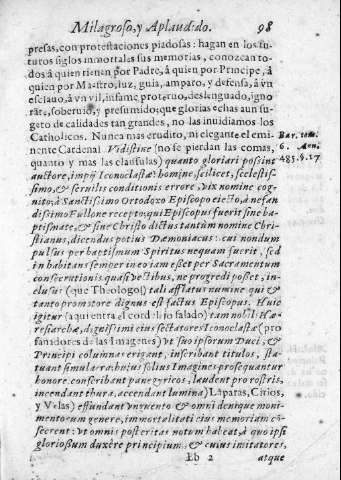 Milagroso, y Aplaudido. 98
presas, con protestaciones piadosas: hagan en los fu-
turos siglos inmortales sus memorias, conozcan to-
dos á quien tienen por Padre, á quien por Principe, á
quien por Maestro, luz, guia, amparo, y defensa, á vn
esclauo, á vn vil, infame, proteruo, deslenguado, igno
rãte, soberuio, y presumido; que glorias echas á un su-
geto de calidades tan grandes, no las inuidiamos los
Catholicos. Nunca mas erudito, ni elegante el emi-
nente Cardenal. Vidistine (no se pierdan las comas,
quanto y mas las clausulas) quanto gloriari possint
auctore, impij Iconoclastæ homine, scilicet, scelestis-
simo, & seruilis conditionis errore, vix nomine cog-
nito; à Sanctissimo Ortodoxo Episcopo eiecto, à nefan
dissimo Fullone recepto; qui Episcopus fuerit sine ba-
ptismate, & sine Christo dictus tantùm nomine Chri-
stianus, dicendus potius Dæmoniacus: cui nondum
pulsus per baptismum Spiritus nequam fuerit, sed
in habitans semper in eo iam esset per Sacramentum
consecrationis quasi vectibus, ne progredi posset, in-
clusus (que Theologo) tali afflatus numine qui &
tanto promotore dignus est factus Episcopus. Huic
igitur (aqui entra el cordelejo salado) tam nobili Hæ-
resiarchæ, dignissimi eius sectatores Iconoclastæ (pro
fanadores de las Imagenes) vt suo ipsorum Duci, &
Principi columnas erigant, inscribant titulos, sta-
tuant simulacra: huius solius Imagines prosequantur
honore: conscribant panegyricos, laudent pro rostris,
incendant thura, accendant lumina) Lãparas, Cirios,
y Velas) effundant vnguento & omni denique moni-
mentorum genere, immortalitati eius memoriam cõ-
secrent: vt omnis posteritas notum habeat, à quo ipsi
gloriosum duxere principium, & cuius imitatores,
Bb 2 atque
Bar. tom.
6. Ann.
485. §. 17